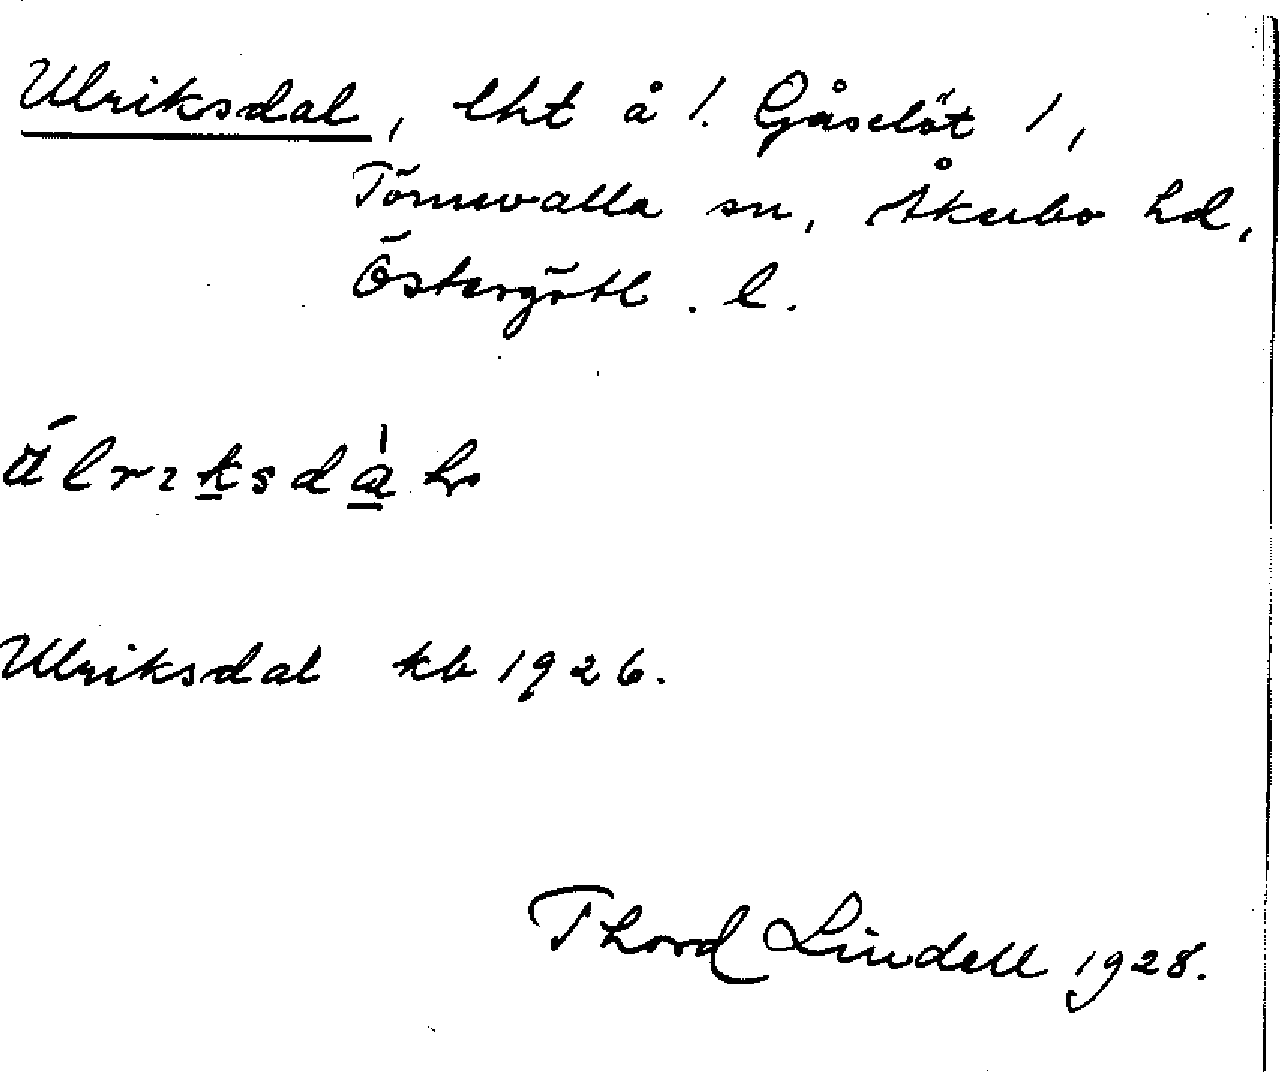 Ulriksdal, lht å 1. Gåselöt 1,
Törnevalla sn, Åkerbo hd,
Östergötl. l.
Ulriksdal kb 1926.
Thord Lindell 1928.